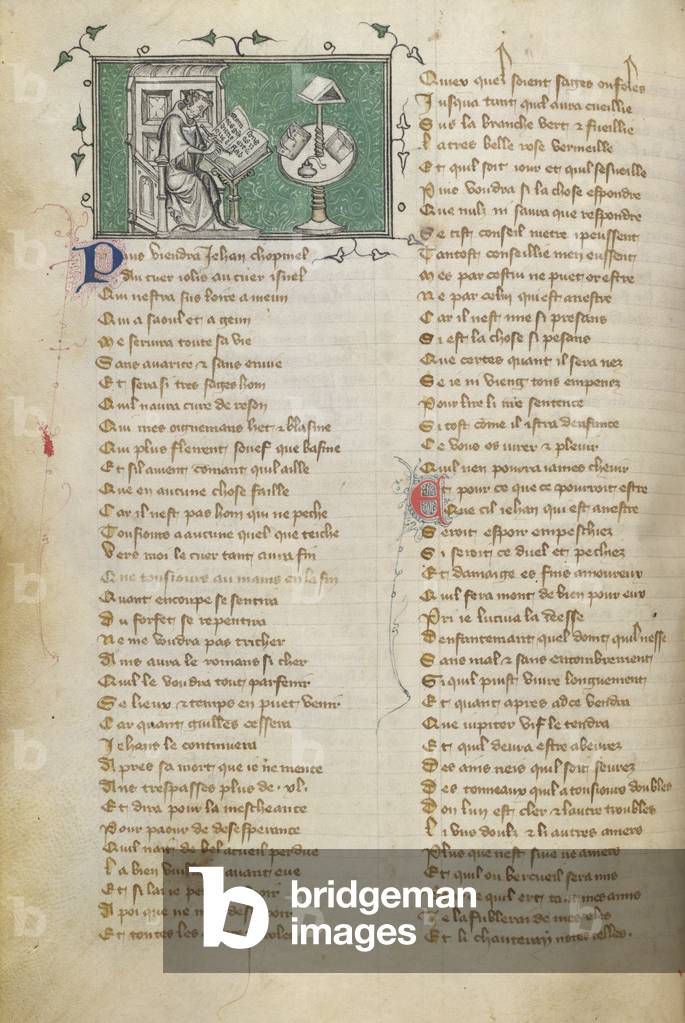 Puis viendra Jehan chopinel
Au cuer iolis au cuer isnel
Qui nestra sus loire a meun
Qui a saoul et a geun
Me seruira toute sa vie
Sans auarice & sans enuie
Et sera si tres sages hom
Quil naura cure de reson
Qui mes oignemans het & blasme
Qui plus flerent souef que basme
Et sil auient comant quil aille
Que en aucune chose faille
Car il nest pas hom qui ne peche
Tousiours a aucune quel que teiche
Vers moi le cuer tant aura fin
Que tousiours au mains en la fin
Quant encoupe se sentira
Du forfet se repentira
Ne me voudra pas tricher
Cil aura le romans si cher
Quil le voudra tout parfenir
Se lieux & temps en puet venir
Car quant guilles cessera
Jehans le continuera
Apres sa mort que ie ne mence
Ans trespasses plus de .xl.
Et dira pour la mescheance
Pour paour de desesperance
Quil nait de bel acueil perdue
La bien auant eue
Et si lai ie
A poi que ne
Et toutes les
Quiex que soient sages ou foles
Jusqua tant quil aura cueillie
Sus la branche vert & fueillie
La tres belle rose vermeille
Et quil soit iour et quil sesueille
Puis voudra si la chose espondre
Que nulz ni saura que respondre
Se cist conseil metre i peussent
Tantost conseillie men eussent
Mes par cestui ne puet or estre
Ne par celui qui est a nestre
Car il nest mie si presans
Si est la chose si pesans
Que certes quant il sera nez
Se ie ni vieng tous empenez
Pour lire li vie sentence
Si tost come il istra denfance
Ce vous os iurer & pleuir
Quil nen pourra iames cheuir
Et pour ce que ce pourroit estre
Que cil iehan qui est a nestre
Seroit espoir empeschiez
Si seroit ce duel et pechiez
Et damaige es fins amoureux
Quil fera mont de bien pour eux
Pri ie lucina la deesse
Denfantemant quel doint quil nesse
Sans mal & sans encombrement
Si quil puist viure longuement
Et quant apres a ce vendra
Que iupiter vif le tendra
Et quil deura estre abeurez
Des ains neis quil soit seurez
Des tonneaux quil a tousiours doubles
Don lun est cler & lautre troubles
Li vns doulz & li autres amers
Plus que nest siue ne amers
Et quil ou bercueil sera mis
quil ert tant mes amis
Je lafublerai de mes eles
Et li chanterai notes telles.
bridgeman
images